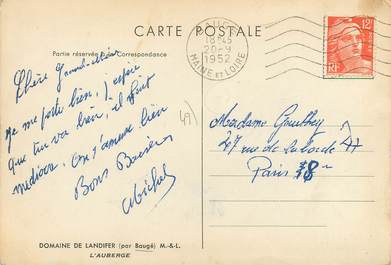 CARTE POSTALE
Partie réservée à la Correspondance
BAUGÉ
18H45
20-9
1952
MAINE ET LOIRE
12F
RF
Chère Grand-mère
Je me porte bien, j'espère
que tu va bien, il fait
médiocre, on s'amuse bien
Bons Baisers
Michel
49
Madame Gauthey
27 rue de Laborde
Paris 8e
DOMAINE DE LANDIFER (par Baugé) M.-&L.
L'AUBERGE